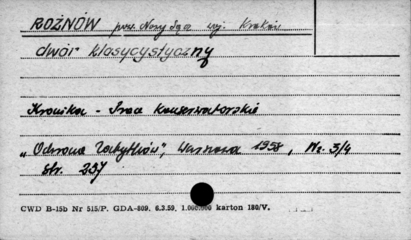 ROŻNÓW pow. Nowy Sącz woj. Kraków
dwór klasycystyczny
Kronika - Prace konserwatorskie
„Ochrona Zabytków", Warszawa 1958, Nr. 3/4
str. 237
CWD B-15b Nr 515/P. GDA-809. 6.3.59. 1.000.000 karton 180/V.